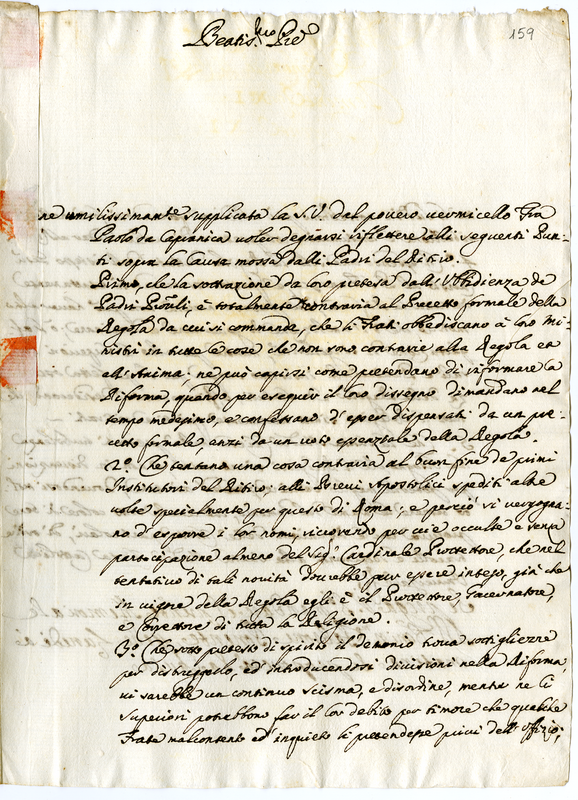 159
Beatis.mo Pre
ne umilissimam.te supplicata la S.V. dal povero vermicello Fra
Paolo da Capranica voler degnarsi riflettere alli seguenti Pun-
ti sopra la Causa mossa dalli Padri del Ritiro.
Primo, che la sottrazione da loro pretesa dall' Ubbidienza de
Padri Pro.uli, è totalmente contraria al Precetto formale della
Regola da cui si comanda, che li Frati obbediscano à loro Mi-
nistri in tutte le cose che non sono contrarie alla Regola et
all'Anima; ne può capirsi come pretendano di riformare la
Riforma, quando per eseguir il loro dissegno dimandano nel
tempo medesimo, e confessano d'esser dispensati da un pre-
cetto formale, anzi da un voto essenziale della Regola.
2.º Che tentano una cosa contraria al buon fine de primi
Institutori del Ritiro: alli Brevi Apostolici spediti altre
volte specialmente per questo di Roma; e perciò si vergogna-
no d'esporre i lor nomi, ricorrendo per vie occulte e senza
participazione almeno del Sig.r Cardinale Protettore, che nel
tentativo di tali novità dovrebbe pur essere inteso, già che
in vigore della Regola egli è il Protettore, Governatore,
e Correttore di tutta la Religione.
3.º Che sotto pretesto di spirito il demonio trova sottigliezze
per distruggerlo, ed' introducendosi divisioni nella Riforma,
vi sarebbe un continuo scisma, e disordine, mentre ne li
Superiori potrebbono far il lor debito per timore che qualche
Frate malcontento ed' inquieto li pretendesse privi dell' Offizio;